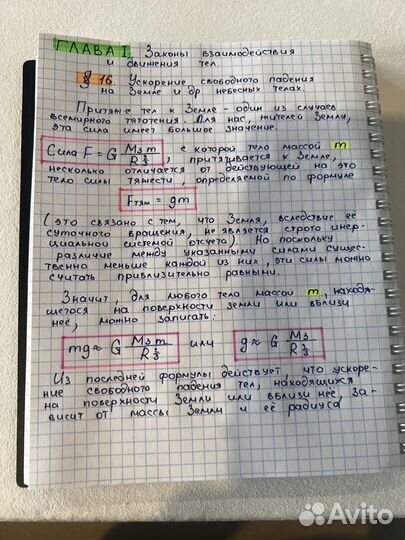 ГЛАВА I. Законы взаимодействия
и движения тел.
§ 16. Ускорение свободного падения
на Земле и др небесных телах.
Притяже тел к Земле - один из случаев
всемирного тяготения. Для нас, жителей Земли,
эта сила имеет большое значение.
Сила F = G Mз m / R²з, с которой тело массой m
притягивается к Земле,
несколько отличается от действующей на это
тело силы тяжести, определяемой по формуле
Fтяж = gm
(это связано с тем, что Земля, вследствие её
суточного вращения, не является строго инер-
циальной системой отсчета). Но поскольку
различие между указанными силами сущес-
твенно меньше каждой из них, эти силы можно
считать приблизительно равными.
Значит, для любого тело массой m, находя-
щегося на поверхности земли или вблизи
неё, можно записать:
mg ≈ G Mз m / R²з или g ≈ G Mз / R²з
Из последней формулы действует, что ускоре-
ние свободного падения тел, находящихся
на поверхности Земли или вблизи неё, за-
висит от массы Земли и её радиуса
Avito